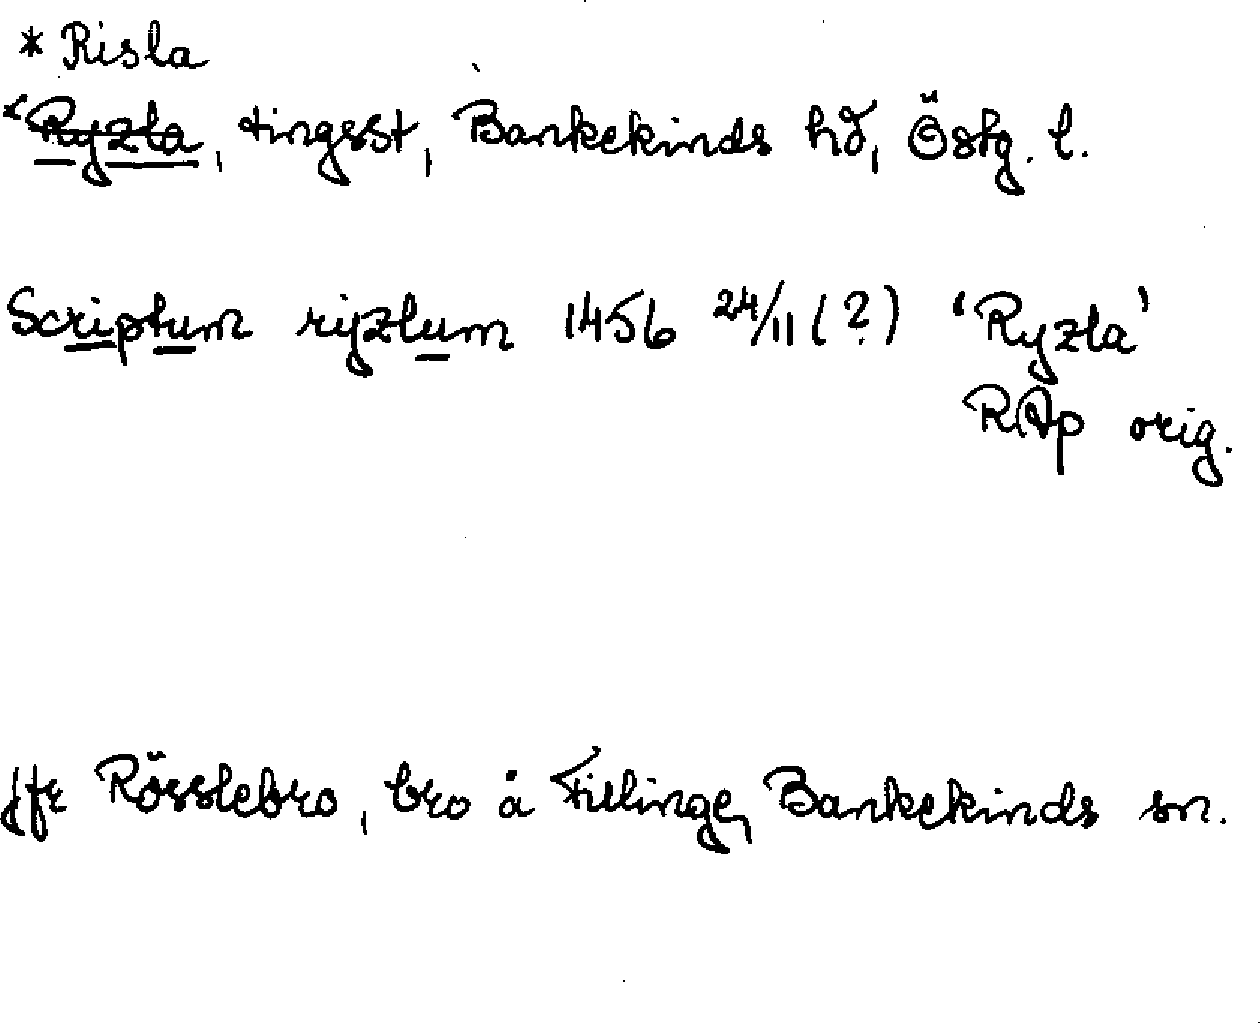 * Risla
‘Ryzla, tingsst, Bankekinds hd, Östg. l.
Scriptum rijzlum 1456 24/11 (?) ‘Ryzla’
RAp orig.
Jfr Rösslebro, bro å Fillinge, Bankekinds sn.